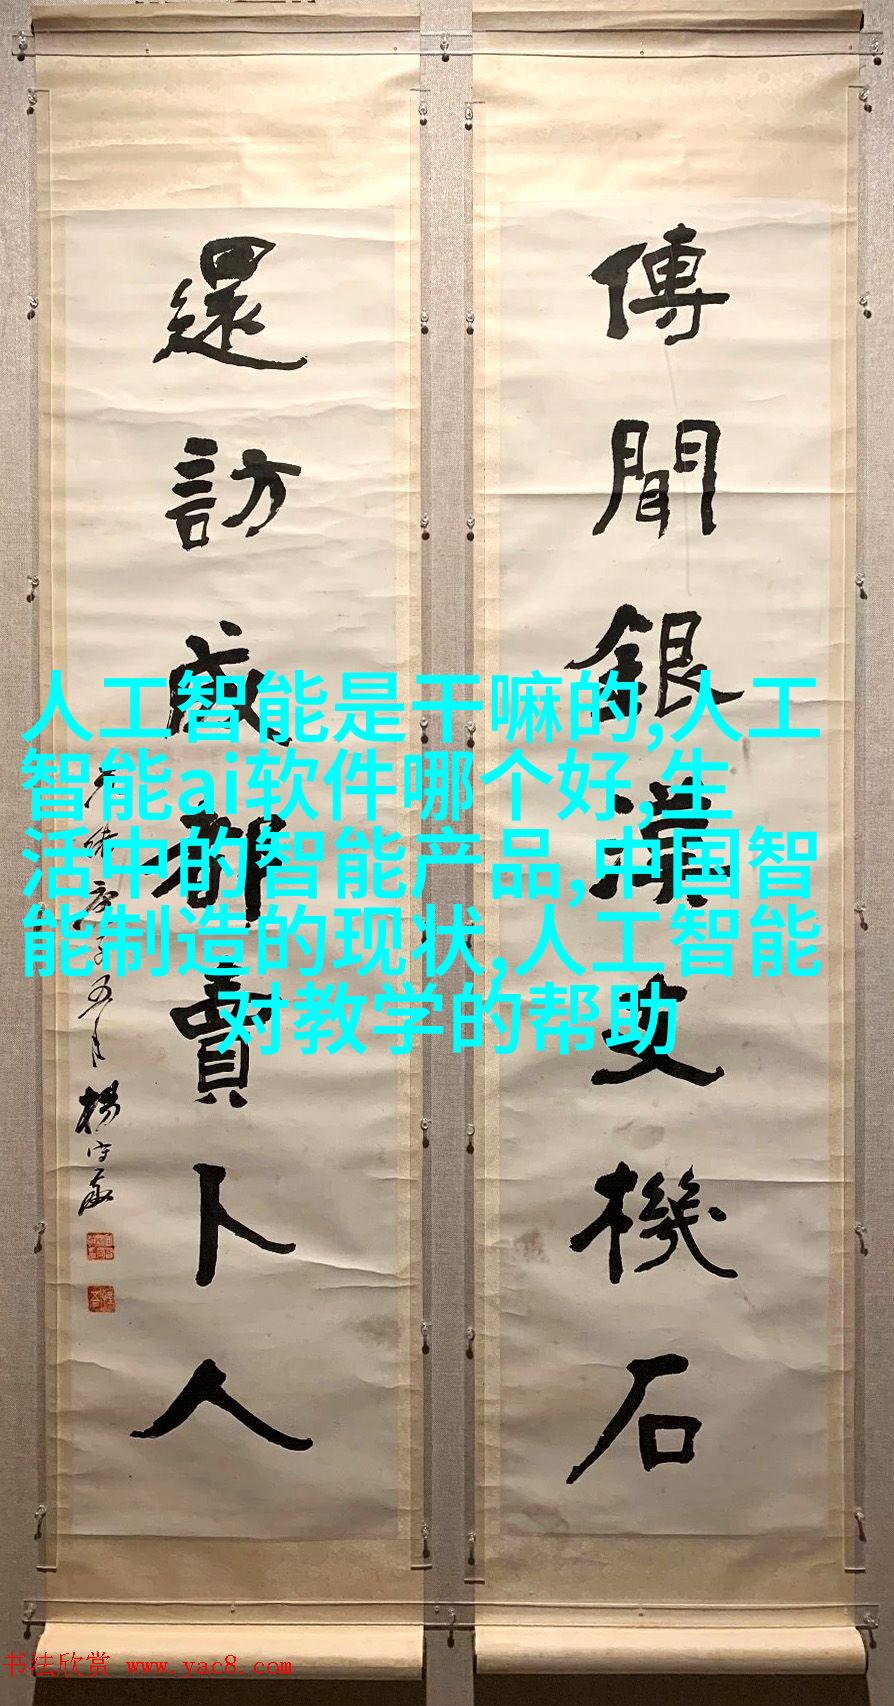 傳聞銀漢支機石
還訪成都賣卜人
光緒庚子五月楊守敬
人工智能是干嘛的,人工
智能ai软件哪个好,生
活中的智能产品,中国智
能制造的现状,人工智能
对教学的帮助
书法欣赏 www.yac8.com